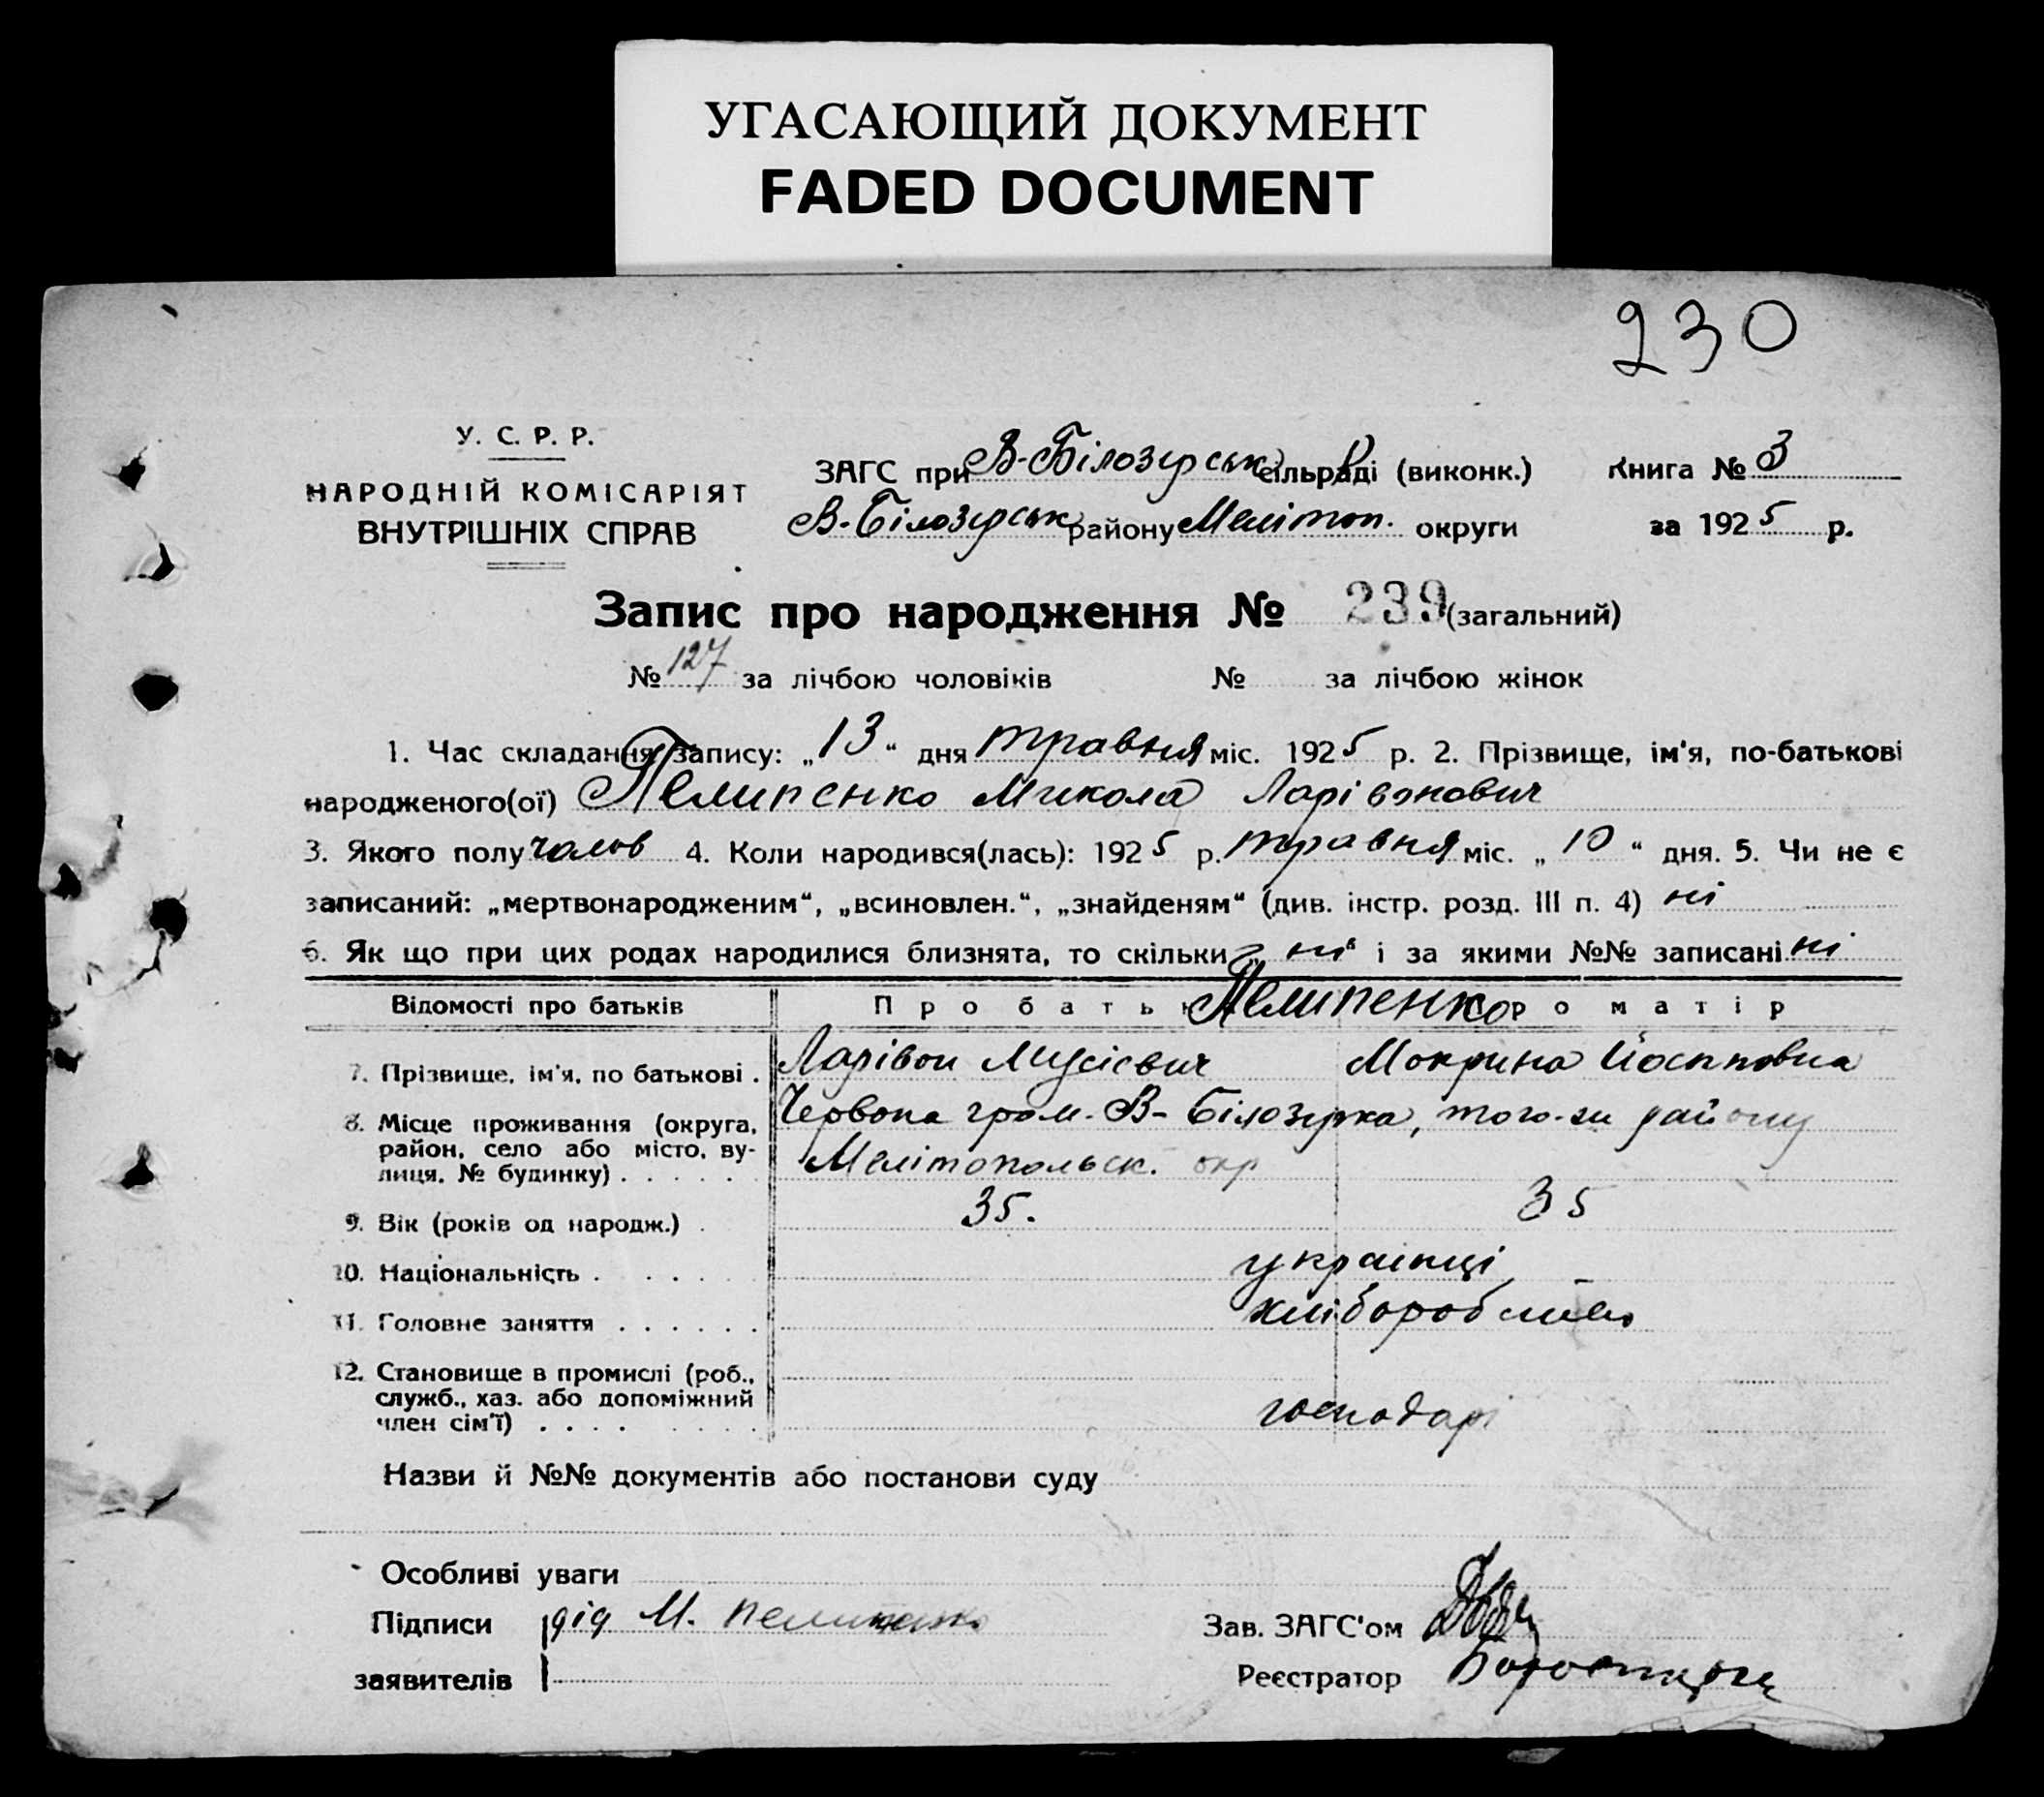 УГАСАЮЩИЙ ДОКУМЕНТ
FADED DOCUMENT
230
У. С. Р. Р.
НАРОДНІЙ КОМІСАРІЯТ
ВНУТРІШНІХ СПРАВ
ЗАГС при В-Білозерськ сільраді (виконк.) Книга № 3
В-Білозерськ району Меліттоп. округи за 1925 р.
Запис про народження № 239 (загальний)
№ 127 за лічбою чоловіків № за лічбою жінок
1. Час складання запису: „13“ дня травня міс. 1925 р. 2. Прізвище, ім'я, по-батькові
народженого(ої) Пелипенко Микола Ларівонович
3. Якого полу чолов 4. Коли народився(лась): 1925 р. травня міс. „10“ дня. 5. Чи не є
записаний: „мертвонародженим“, „всиновлен.“, „знайденям“ (див. інстр. розд. III п. 4) ні
6. Як що при цих родах народилися близнята, то скільки ні і за якими №№ записані ні
Відомості про батьків Про батька Пелипенко Про матір
7. Прізвище, ім'я, по батькові . Ларівон Мусієвич Мокрина Йосиповна
8. Місце проживання (округа, район, село або місто, вулиця, № будинку) . . . . . Червона гром. В-Білозерка, того-ж району
Мелітопольськ. окр
9. Вік (років од народж.) . 35. 35
10. Національність . . . . . українці
11. Головне заняття . . . . . . хлібороб
12. Становище в промислі (роб.,
служб., хаз. або допоміжний
член сім'ї) . . . . господарі
Назви й №№ документів або постанови суду
Особливі уваги
Підписи дід М. Пелипенко Зав. ЗАГС'ом
заявителів Реєстратор